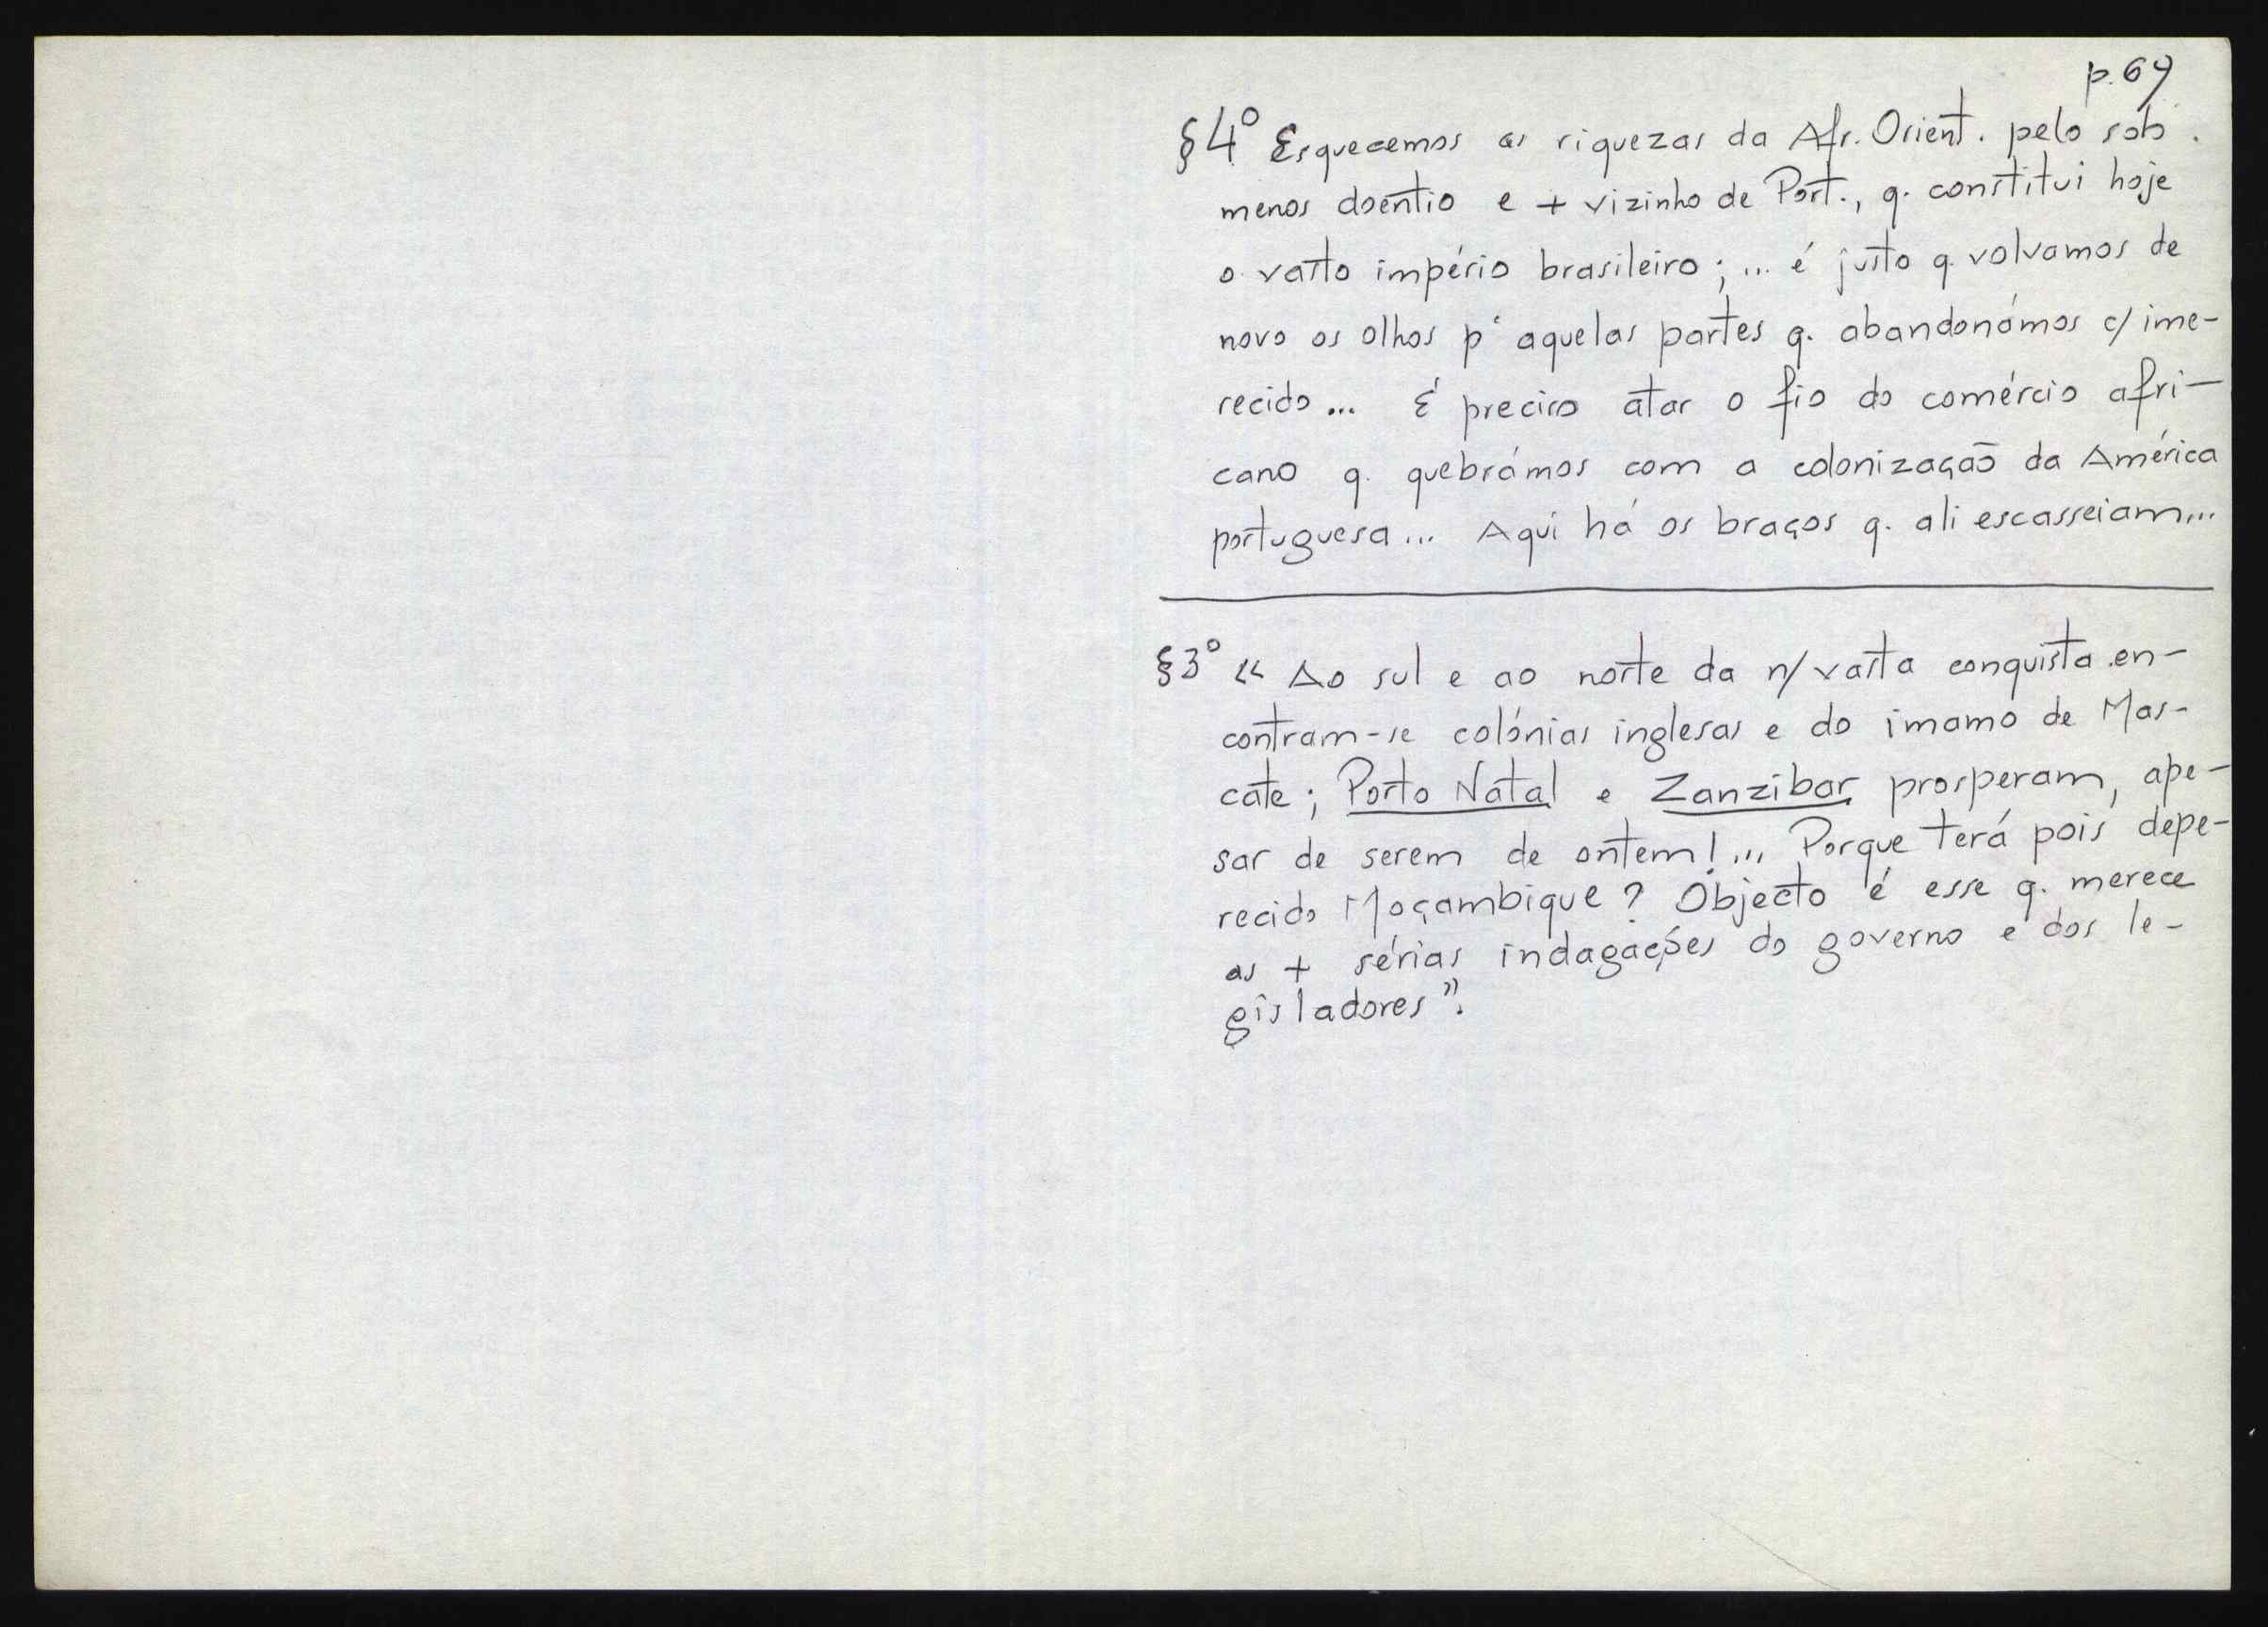 p. 69
§4º Esquecemos as riquezas da Afr. Orient. pelo solo
menos doentio e + vizinho de Port., q. constitui hoje
o vasto império brasileiro; ... é justo q. volvamos de
novo os olhos p' aquelas partes q. abandonámos c/ ime-
recido... É preciso atar o fio do comércio afri-
cano q. quebrámos com a colonização da América
portuguesa... Aqui há os braços q. ali escasseiam...
§3º « Ao sul e ao norte da n/ vasta conquista en-
contram-se colónias inglesas e do imamo de Mas-
cate; Porto Natal e Zanzibar prosperam, ape-
sar de serem de ontem!... Porque terá pois depe-
recido Moçambique? Objecto é esse q. merece
as + sérias indagações do governo e dos le-
gisladores".